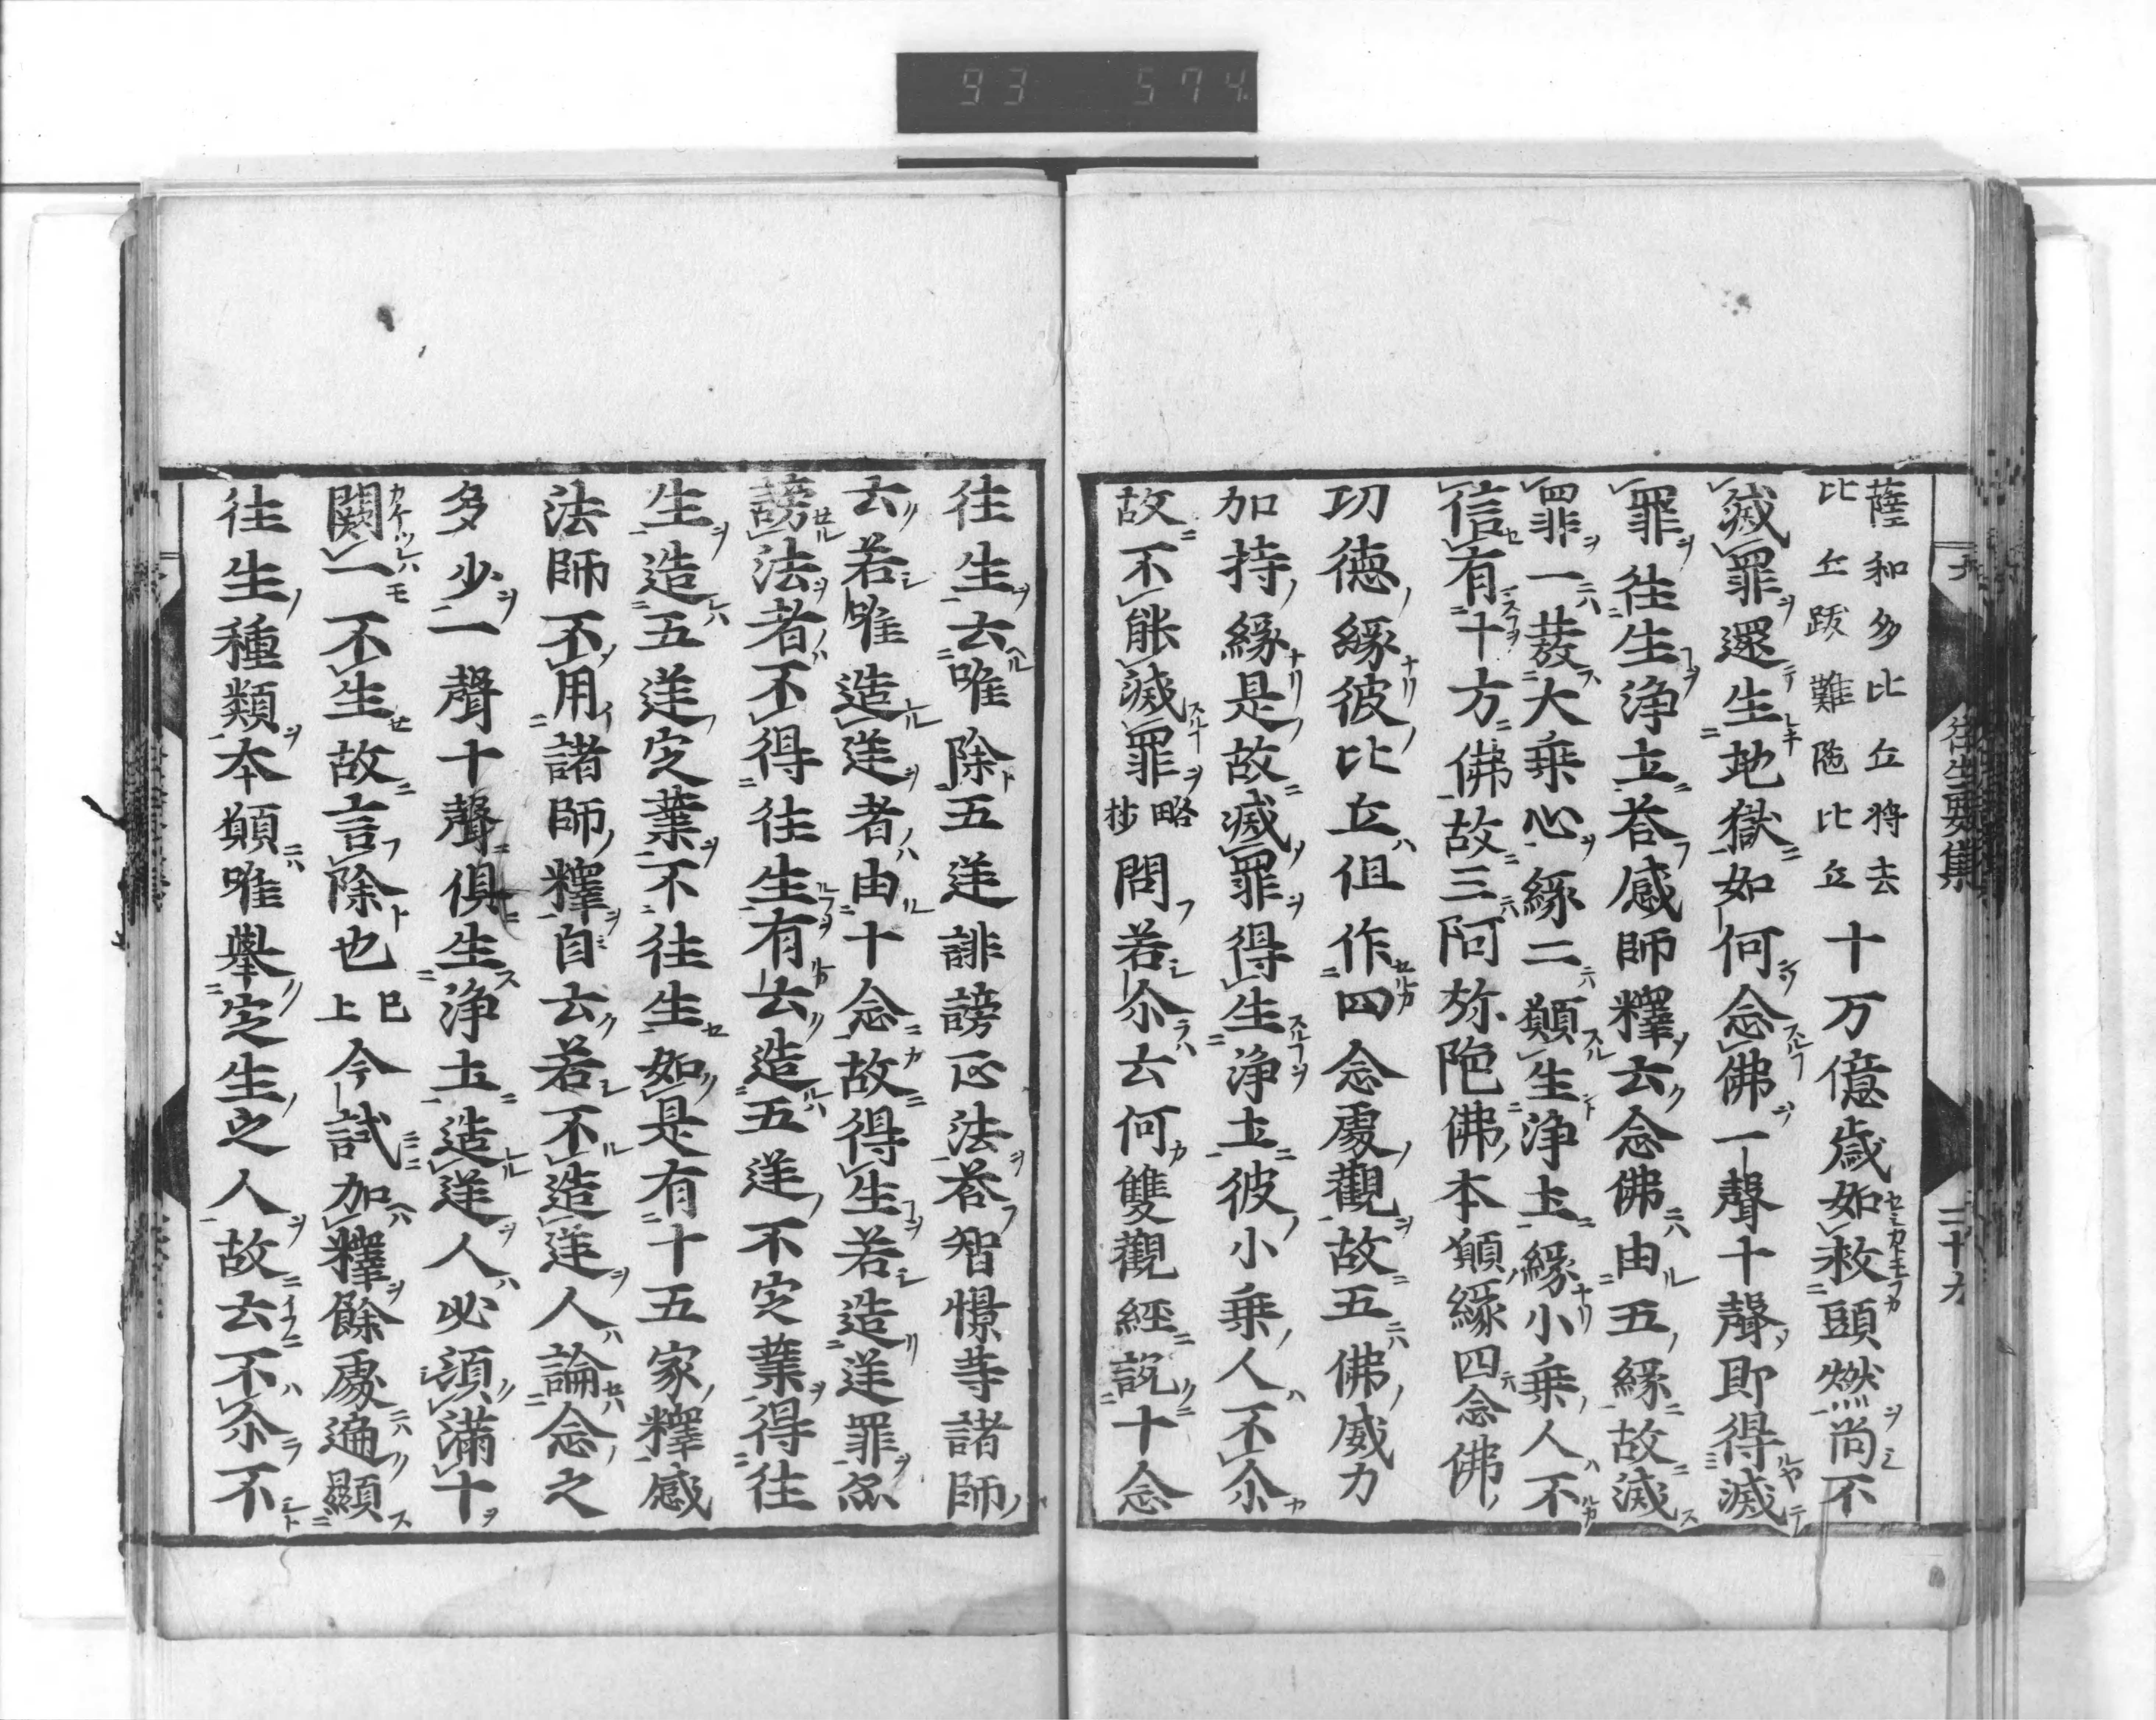 93 574
往生要集
二十九
薩和多比丘將去
比丘跋難陁比丘
十万億歲如救頭燃尚不
滅罪還生地獄如何念佛一聲十聲即得滅
罪往生浄土荅感師釋云念佛由五緣故滅
罪一發大乗心緣二願生浄土緣小乗人不
信有十方佛故三阿弥陁佛本願緣四念佛
功德緣彼比丘但作四念處觀故五佛威力
加持緣是故滅罪得生浄土彼小乗人不尒
故不能滅罪略
抄
問若尒云何雙觀經說十念
往生云唯除五逆誹謗正法荅智憬寺諸師
云若唯造逆者由十念故得生若造逆罪亦
謗法者不得往生有云造五逆不定業得往
生造五逆定業不往生如是有十五家釋感
法師不用諸師釋自云若不造逆人論念之
多少一聲十聲俱生浄土造逆人必須滿十
闕一不生故言除也已
上
今試加釋餘處遍顯
往生種類本願唯舉定生之人故云不尒不